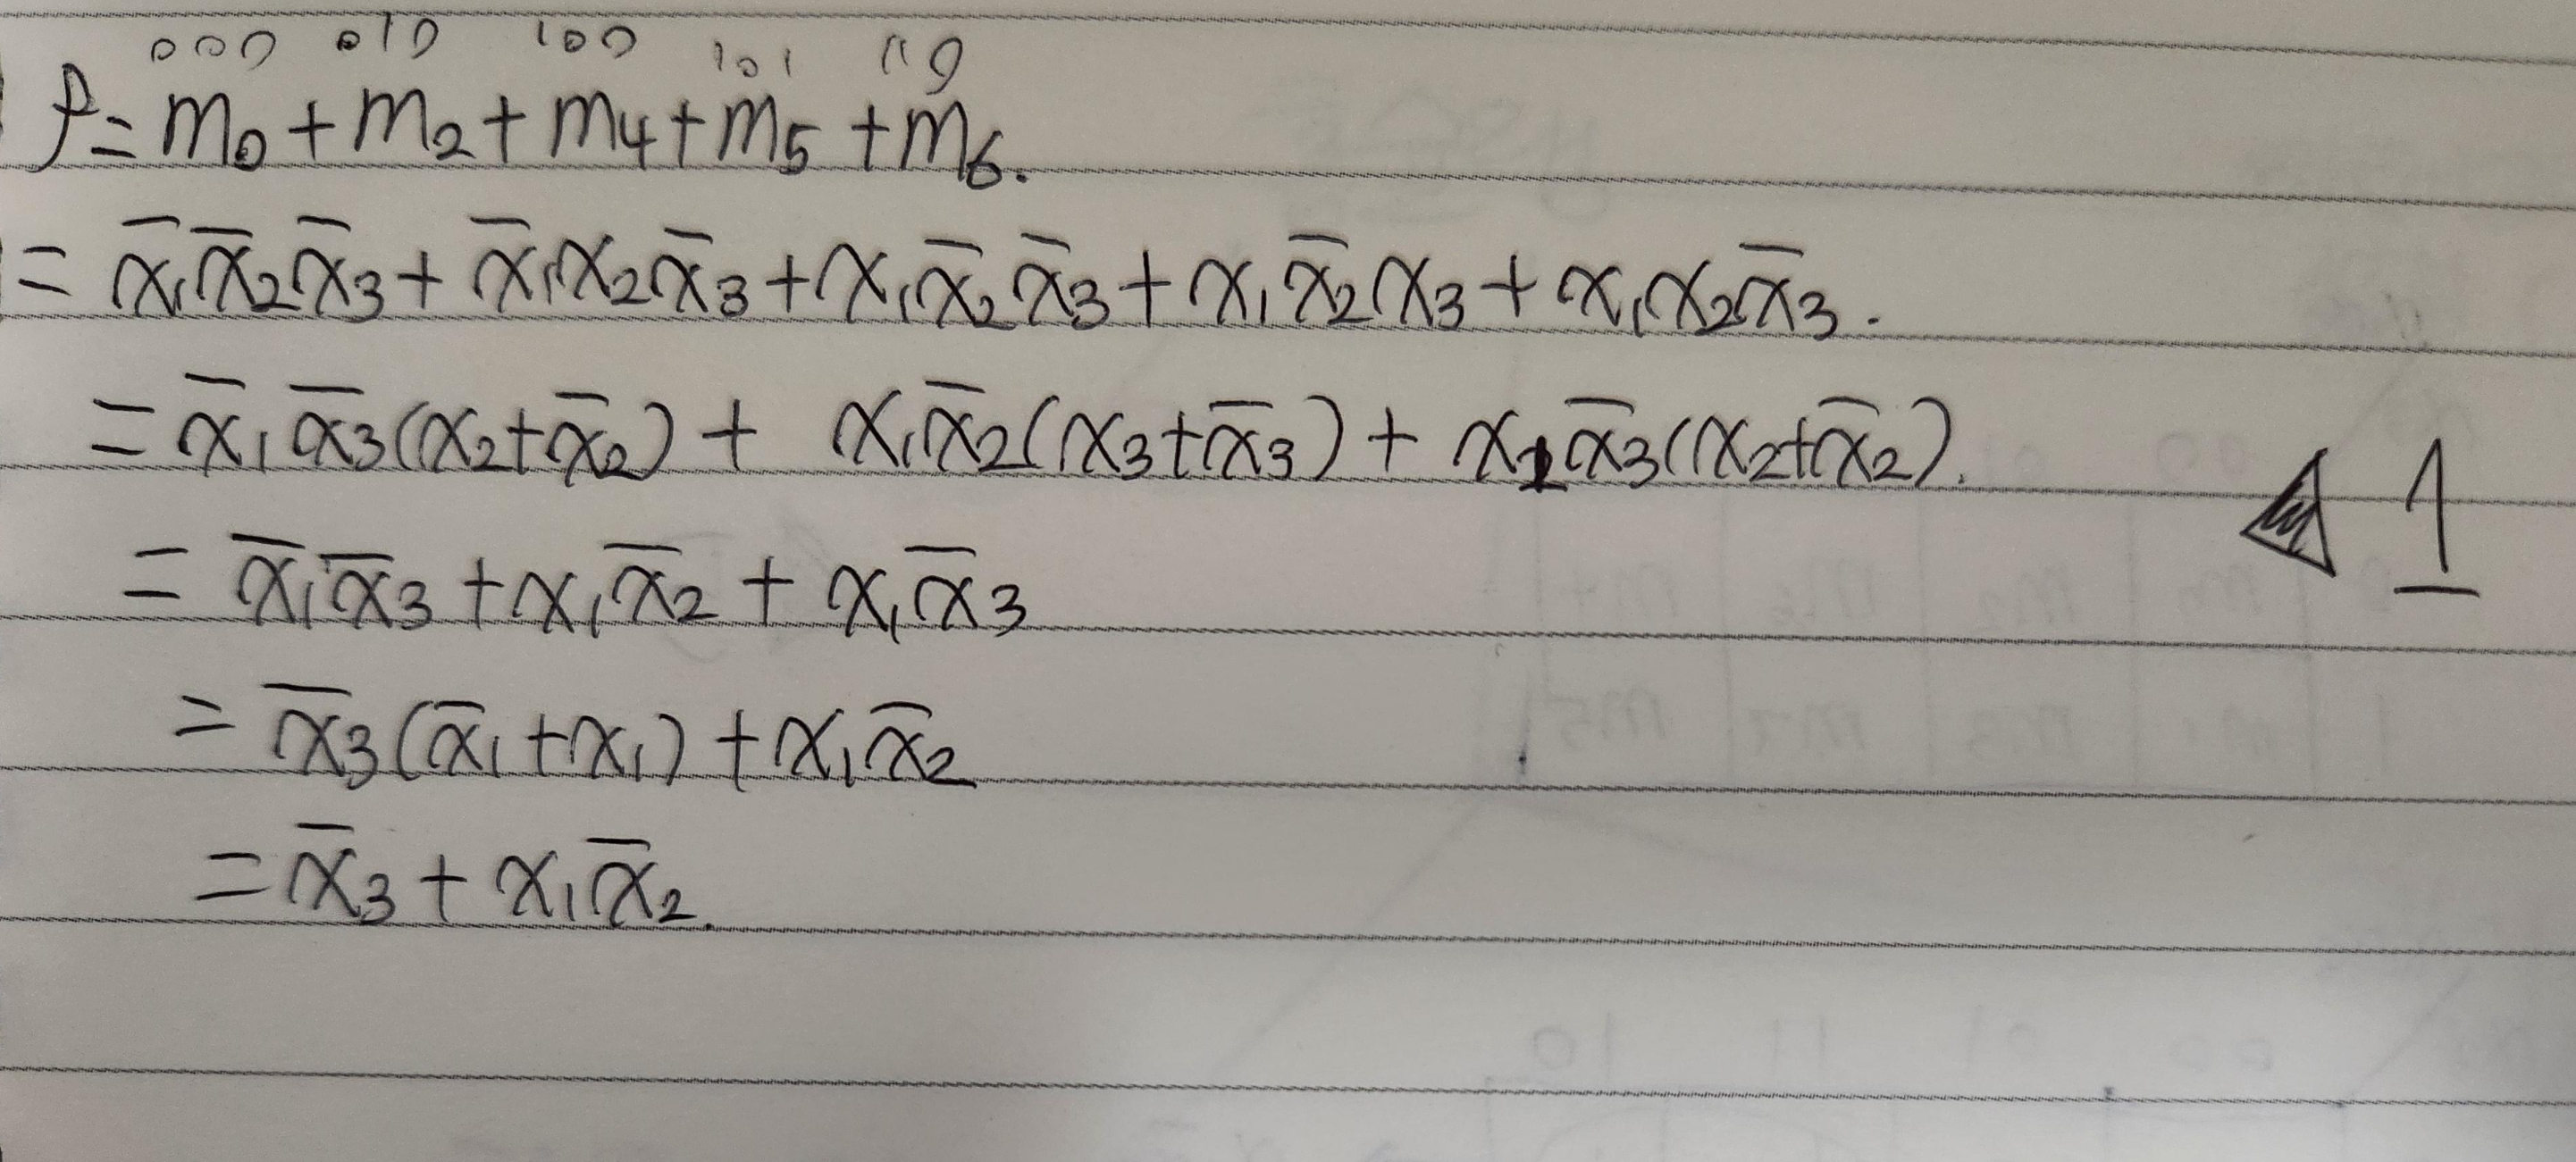 000 010 100 101 110
f = m₀ + m₂ + m₄ + m₅ + m₆.
= x̄₁x̄₂x̄₃ + x̄₁x₂x̄₃ + x₁x̄₂x̄₃ + x₁x̄₂x₃ + x₁x₂x̄₃.
= x̄₁x̄₃(x₂+x̄₂) + x₁x̄₂(x₃+x̄₃) + x₁x̄₃(x₂+x̄₂).
◁ 1
= x̄₁x̄₃ + x₁x̄₂ + x₁x̄₃
= x̄₃(x̄₁+x₁) + x₁x̄₂
= x̄₃ + x₁x̄₂.